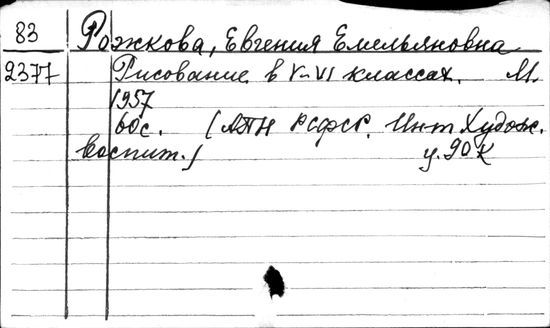 83 Рожкова, Евгения Емельяновна
2377 Рисование в V-VI классах. М.
1957
60с. (АПН РСФСР. Инт Худож.
воспит.)
ц.90к